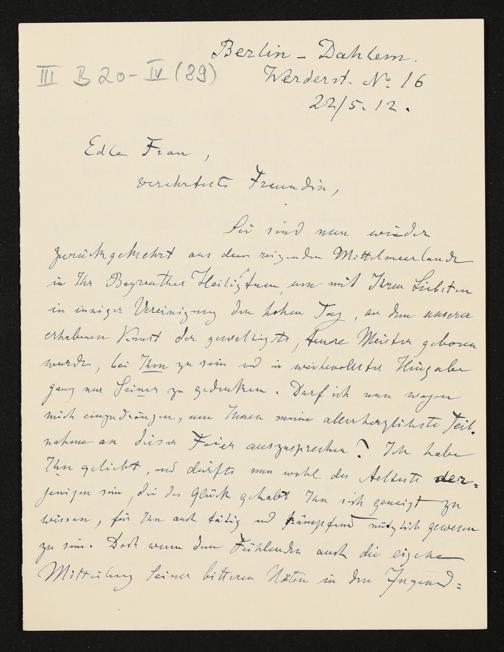 Berlin - Dahlem.
III B 20 - IV (89)
Werderst. No 16
22/5. 12.
Edle Frau,
verehrteste Freundin,
Sie sind nun wieder
zurückgekehrt aus dem reizenden Mittelmeerlande
in Ihr Bayreuther Heiligtum, um mit Ihren Liebsten
in inniger Vereinigung den hohen Tag, an dem unserer
erhabenen Kunst der gewaltigste, teure Meister geboren
wurde, bei Ihm zu sein und in weihevollster Hingabe
ganz nur Seiner zu gedenken. Darf ich nun wagen
mich einzudrängen, um Ihnen meine allerherzlichste Teil-
nahme an dieser Feier auszusprechen? Ich habe
Ihn geliebt, und dürfte nun wohl der Aelteste der=
jenigen sein, die das Glück gehabt Ihn sich geneigt zu
wissen, für Ihn auch tätig und kämpfend nützlich gewesen
zu sein. Doch wenn dem Fühlenden auch die eigene
Mitteilung Seiner bitteren Nöten in den Jugend=